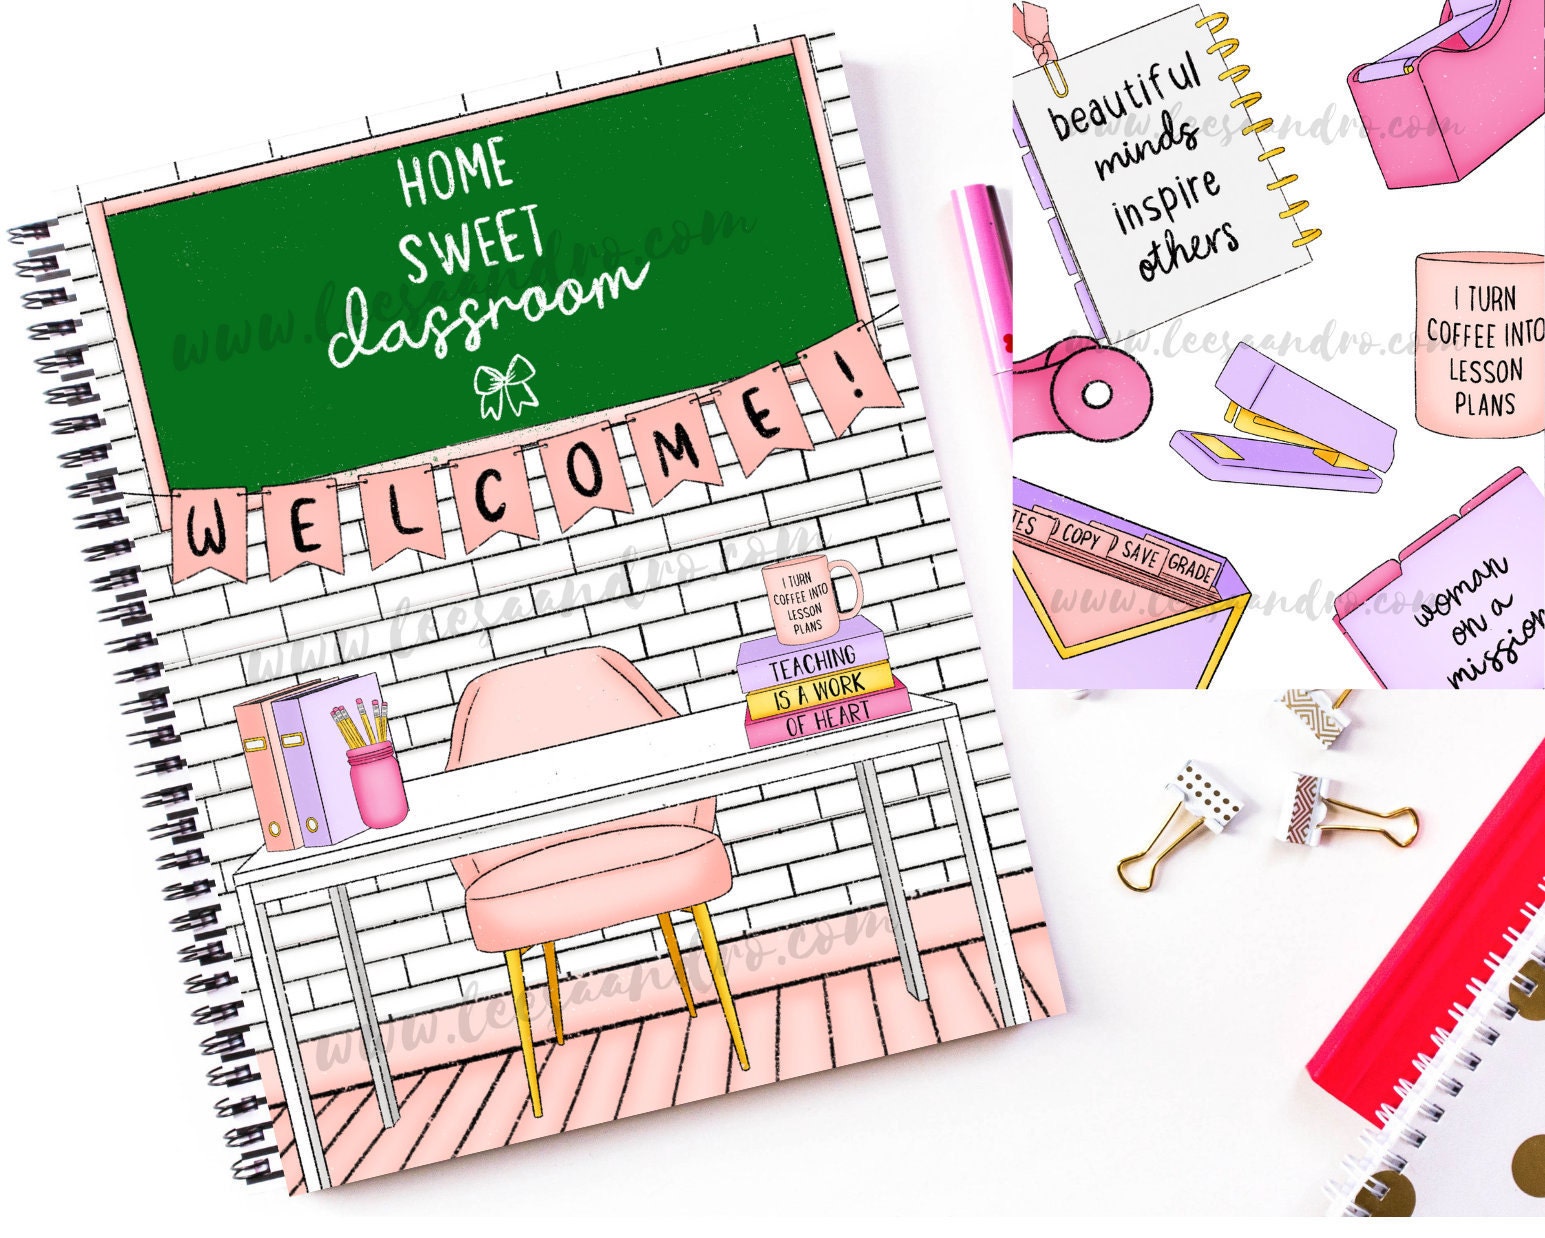 HOME
SWEET
classroom
WELCOME!
I TURN
COFFEE INTO
LESSON
PLANS
TEACHING
IS A WORK
OF HEART
www.leesaandro.com
www.leesaandro.com
www.leesaandro.com
beautiful
minds
inspire
others
www.leesaandro.com
I TURN
COFFEE INTO
LESSON
PLANS
www.leesaandro.com
TES
COPY
SAVE
GRADE
www.leesaandro.com
woman
on a
mission